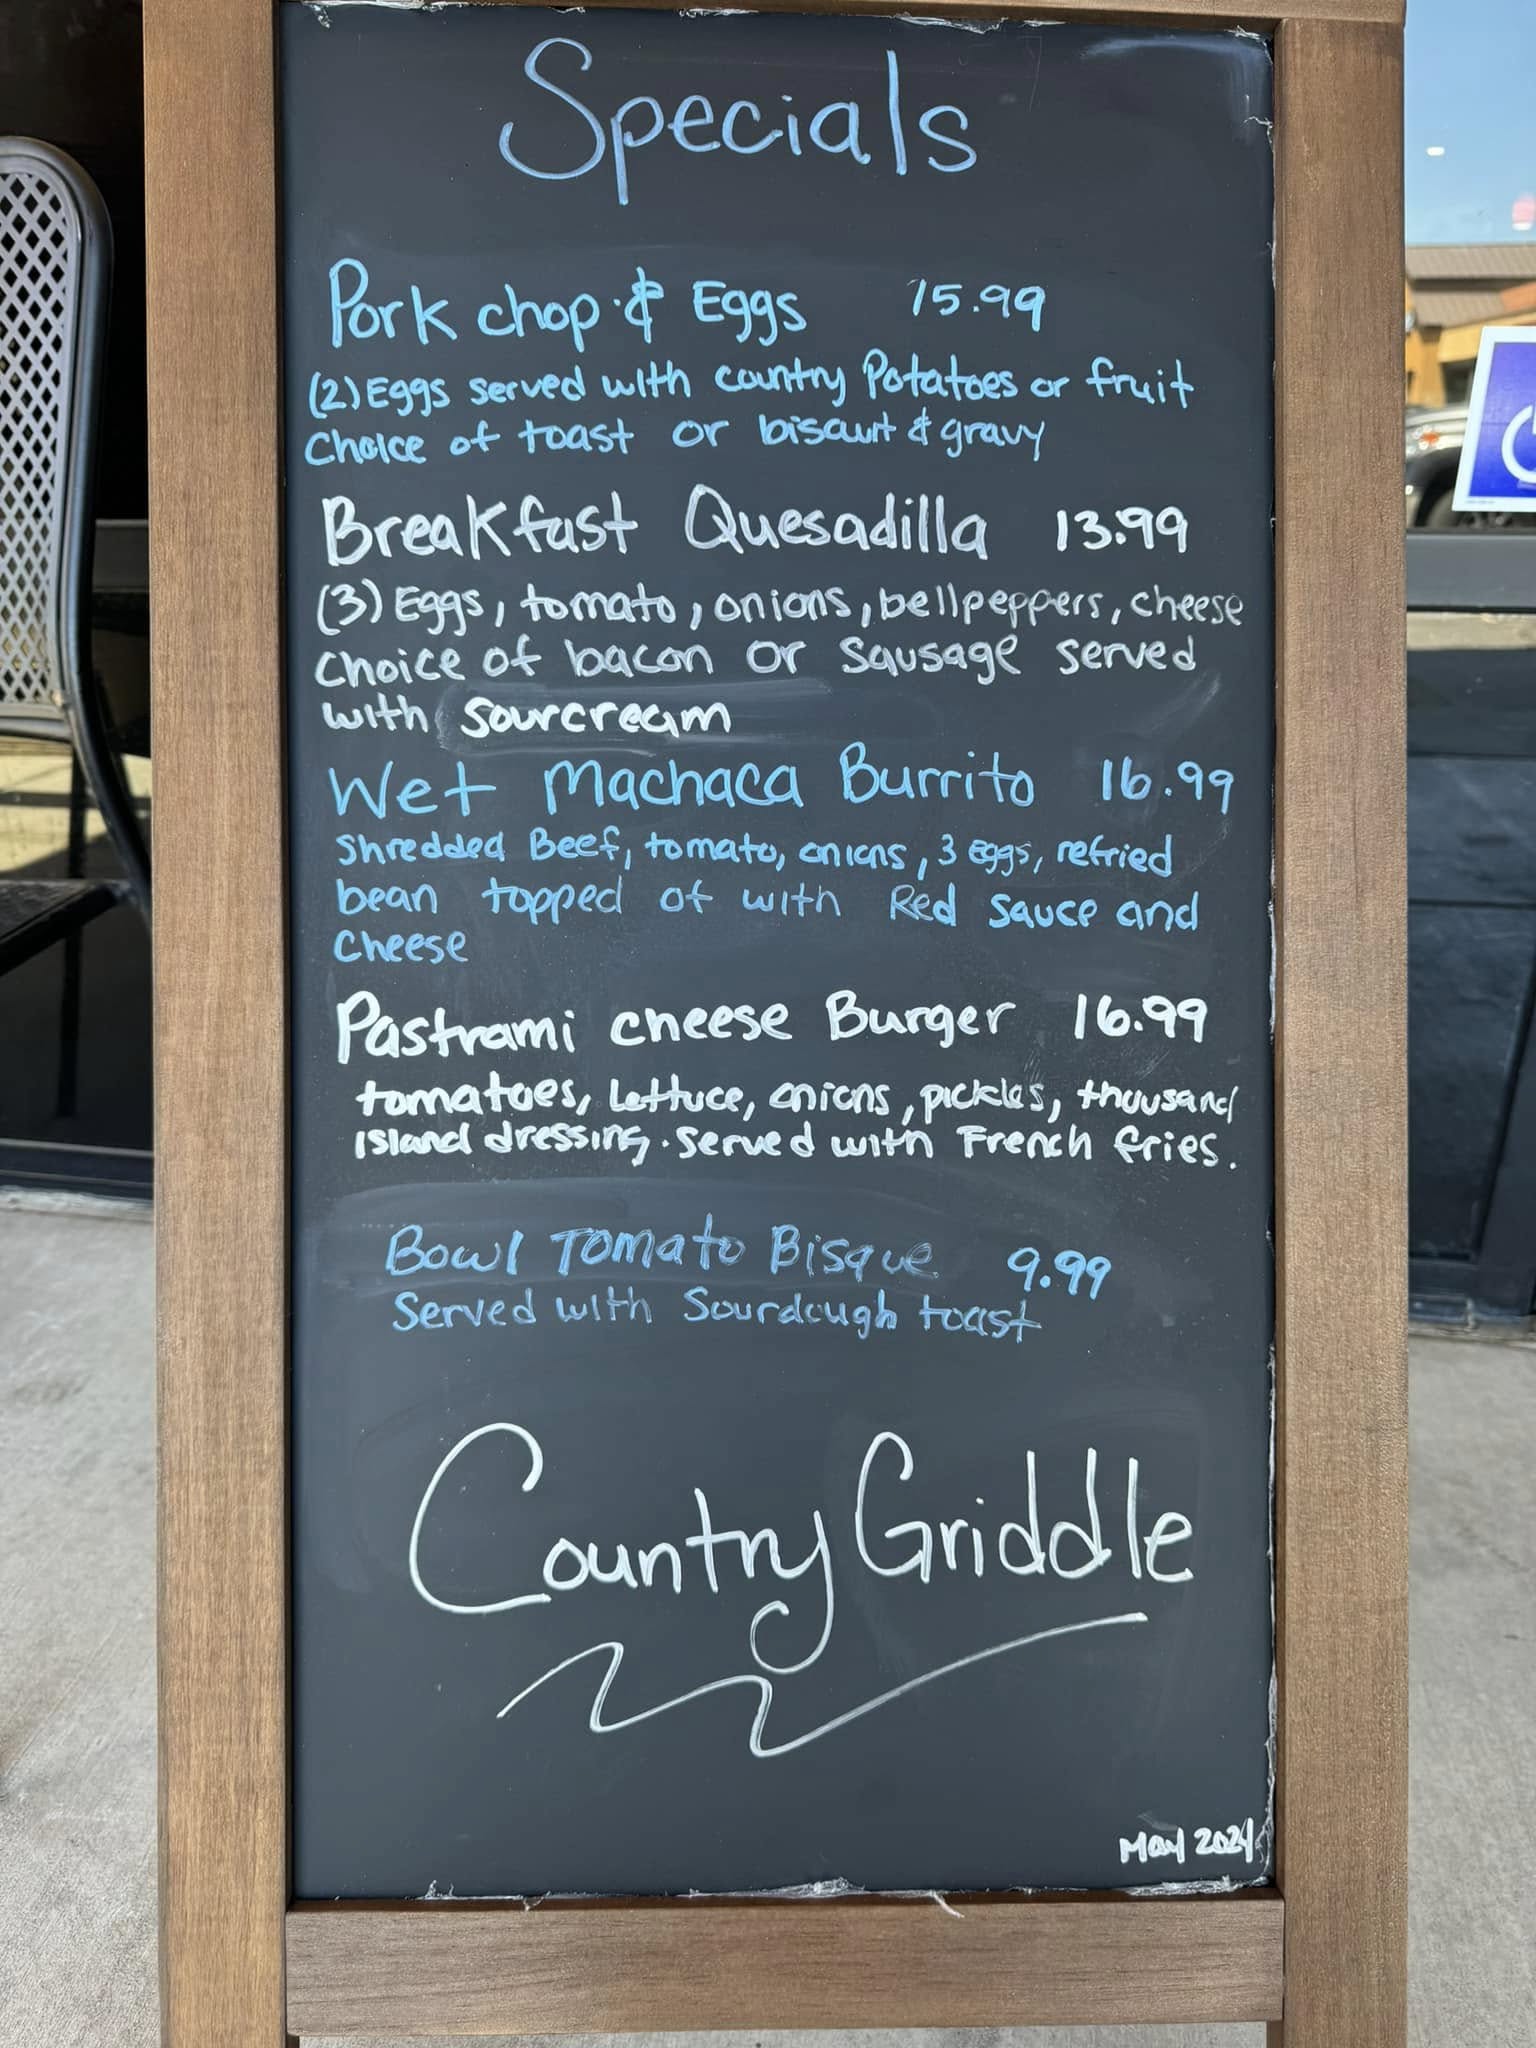 Specials
Pork chop & Eggs 15.99
(2) Eggs served with country Potatoes or fruit
Choice of toast or biscuit & gravy
Breakfast Quesadilla 13.99
(3) Eggs, tomato, onions, bellpeppers, cheese
Choice of bacon or Sausage served
with sourcream
Wet Machaca Burrito 16.99
Shredded Beef, tomato, onions, 3 eggs, refried
bean topped of with Red sauce and
Cheese
Pastrami cheese Burger 16.99
tomatoes, Lettuce, onions, pickles, thousand
island dressing. served with French fries.
Bowl Tomato Bisque 9.99
Served with Sourdough toast
Country Griddle
May 2024